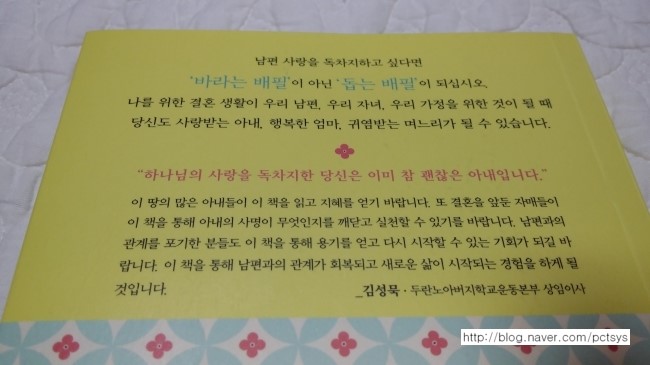 남편 사랑을 독차지하고 싶다면
‘바라는 배필’이 아닌 ‘돕는 배필’이 되십시오.
나를 위한 결혼 생활이 우리 남편, 우리 자녀, 우리 가정을 위한 것이 될 때
당신도 사랑받는 아내, 행복한 엄마, 귀염받는 며느리가 될 수 있습니다.
“하나님의 사랑을 독차지한 당신은 이미 참 괜찮은 아내입니다.”
이 땅의 많은 아내들이 이 책을 읽고 지혜를 얻기 바랍니다. 또 결혼을 앞둔 자매들이
이 책을 통해 아내의 사명이 무엇인지를 깨닫고 실천할 수 있기를 바랍니다. 남편과의
관계를 포기한 분들도 이 책을 통해 용기를 얻고 다시 시작할 수 있는 기회가 되길 바
랍니다. 이 책을 통해 남편과의 관계가 회복되고 새로운 삶이 시작되는 경험을 하게 될
것입니다.
_김성묵 · 두란노아버지학교운동본부 상임이사
http://blog.naver.com/pctsys